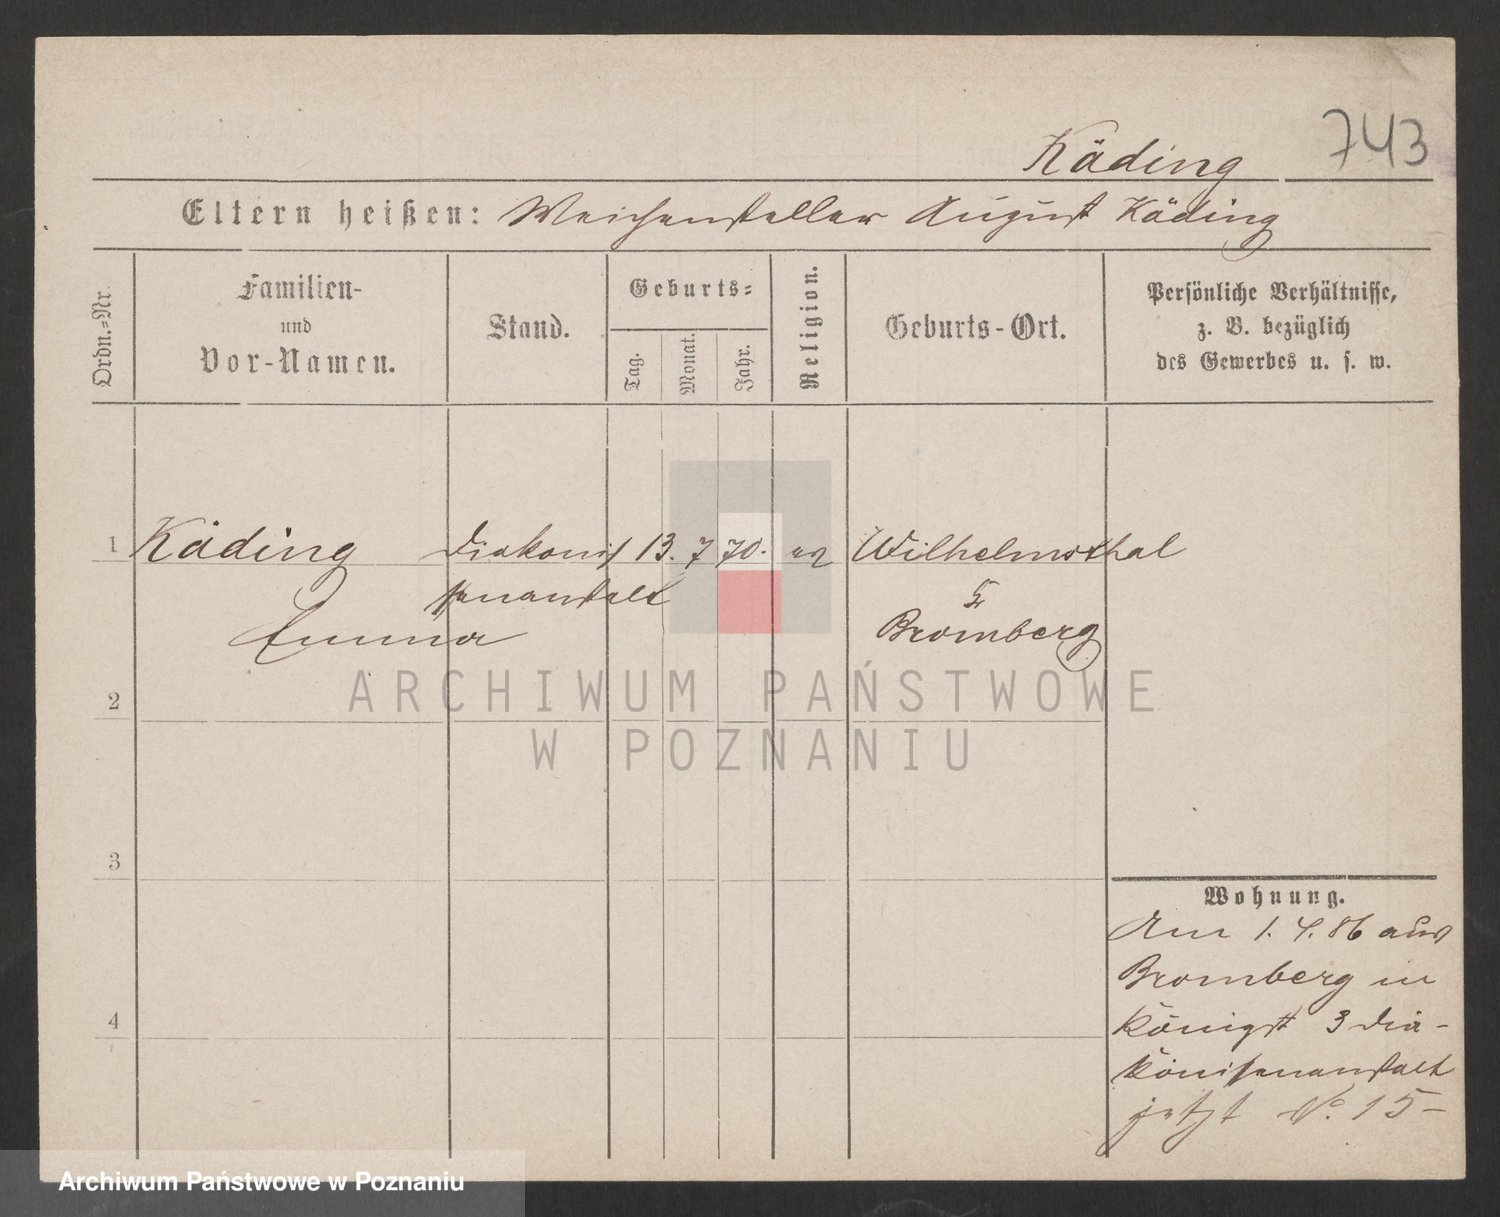 743
Käding
Eltern heißen: Weichensteller August Käding
Ordn.=Nr.
Familien-
und
Vor-Namen.
Stand.
Geburts=
Tag.
Monat.
Jahr.
Religion.
Geburts-Ort.
Persönliche Verhältnisse,
z. B. bezüglich
des Gewerbes u. s. w.
1 Käding Diakonis 13. 7 70. ev Wilhelmsthal
senanstalt
Emma Bromberg
2
3
4
Wohnung.
Am 1. 4. 86 aus
Bromberg in
Königst 3 Dia-
konissenanstalt
jetzt No. 15-
ARCHIWUM PAŃSTWOWE
W POZNANIU
Archiwum Państwowe w Poznaniu